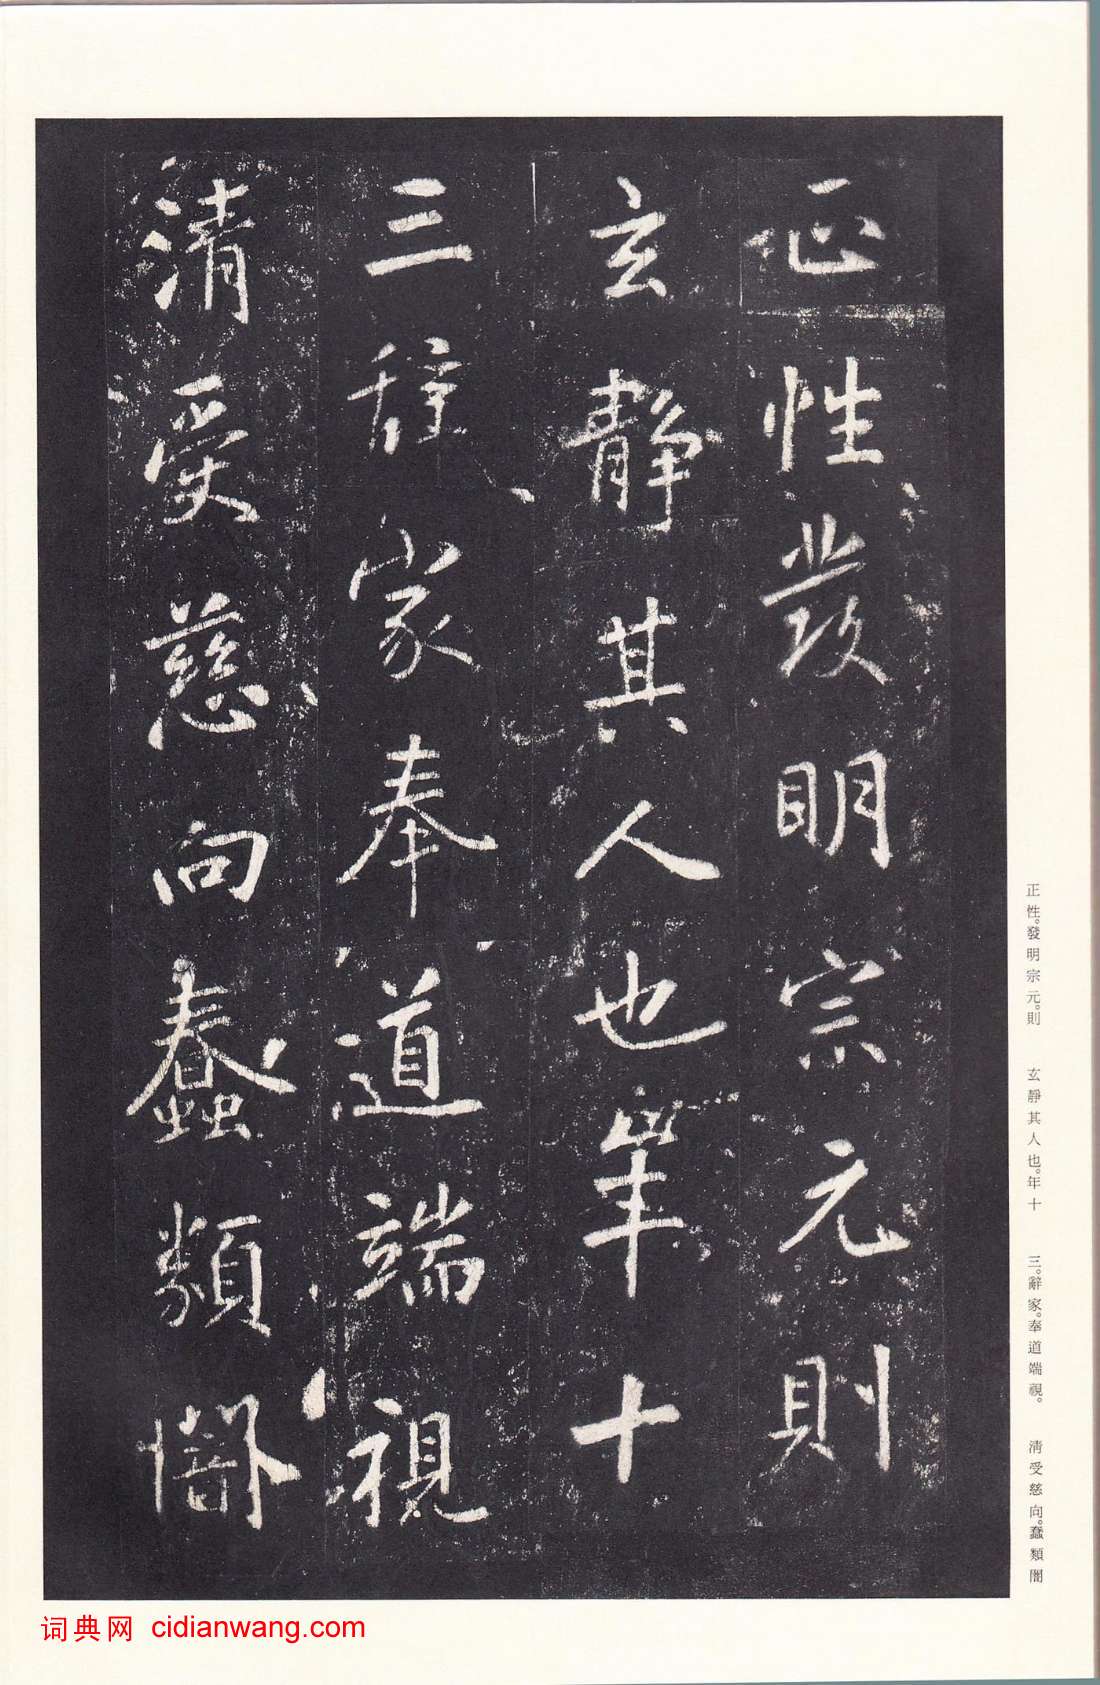 正性發明宗元則
玄靜其人也年十
三辭家奉道端視
清受慈向蠢類闇
正性。發明宗元。則
玄靜其人也。年十
三。辭家。奉道端視。
淸受慈向。蠢類闇
词典网 cidianwang.com